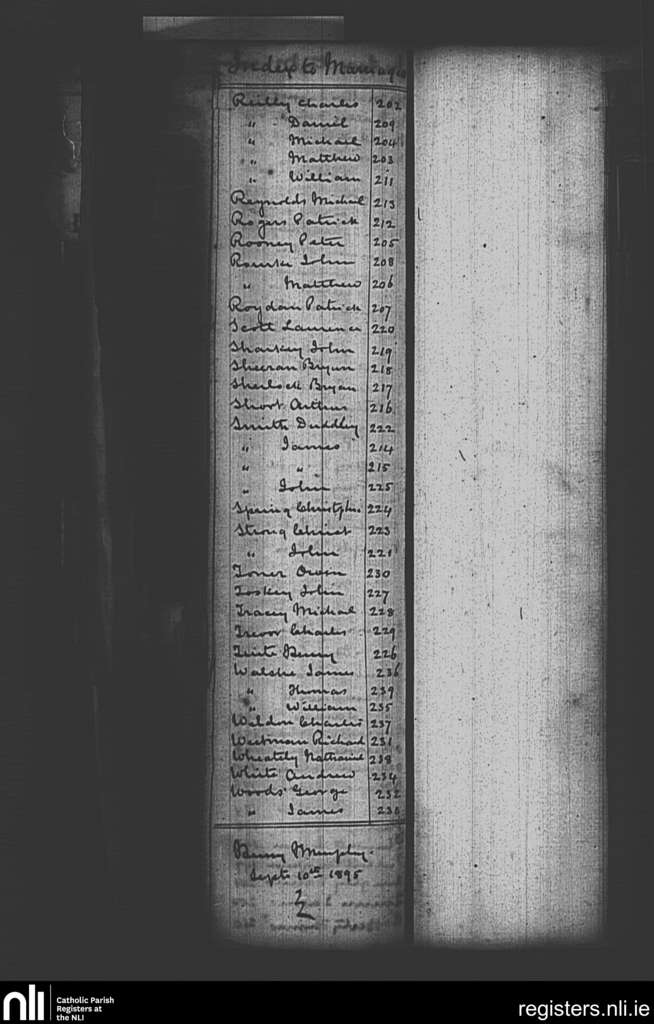 Index to Marriages
Reilly Charles 202
" Daniel 209
" Michael 204
" Matthew 203
" William 211
Reynolds Michael 213
Rogers Patrick 212
Rooney Peter 205
Rourke John 208
" Matthew 206
Roydan Patrick 207
Scott Laurence 220
Sharkey John 219
Sheeran Bryan 218
Sherlock Bryan 217
Short Arthur 216
Smith Duddley 222
" James 214
" " 215
" John 225
Spring Christphr. 224
Strong Christ 223
" John 221
Toner Owen 230
Toskey John 227
Tracey Michael 228
Trevor Charles 229
Henry 226
Walshe James 236
" Thomas 239
" William 235
Weldon Charles 237
Richard 231
Wheately Nathaniel 238
White Andrew 234
Woods George 232
" James
Murphy.
Septr 10th 1895
nli
Catholic Parish
Registers at
the NLI
registers.nli.ie